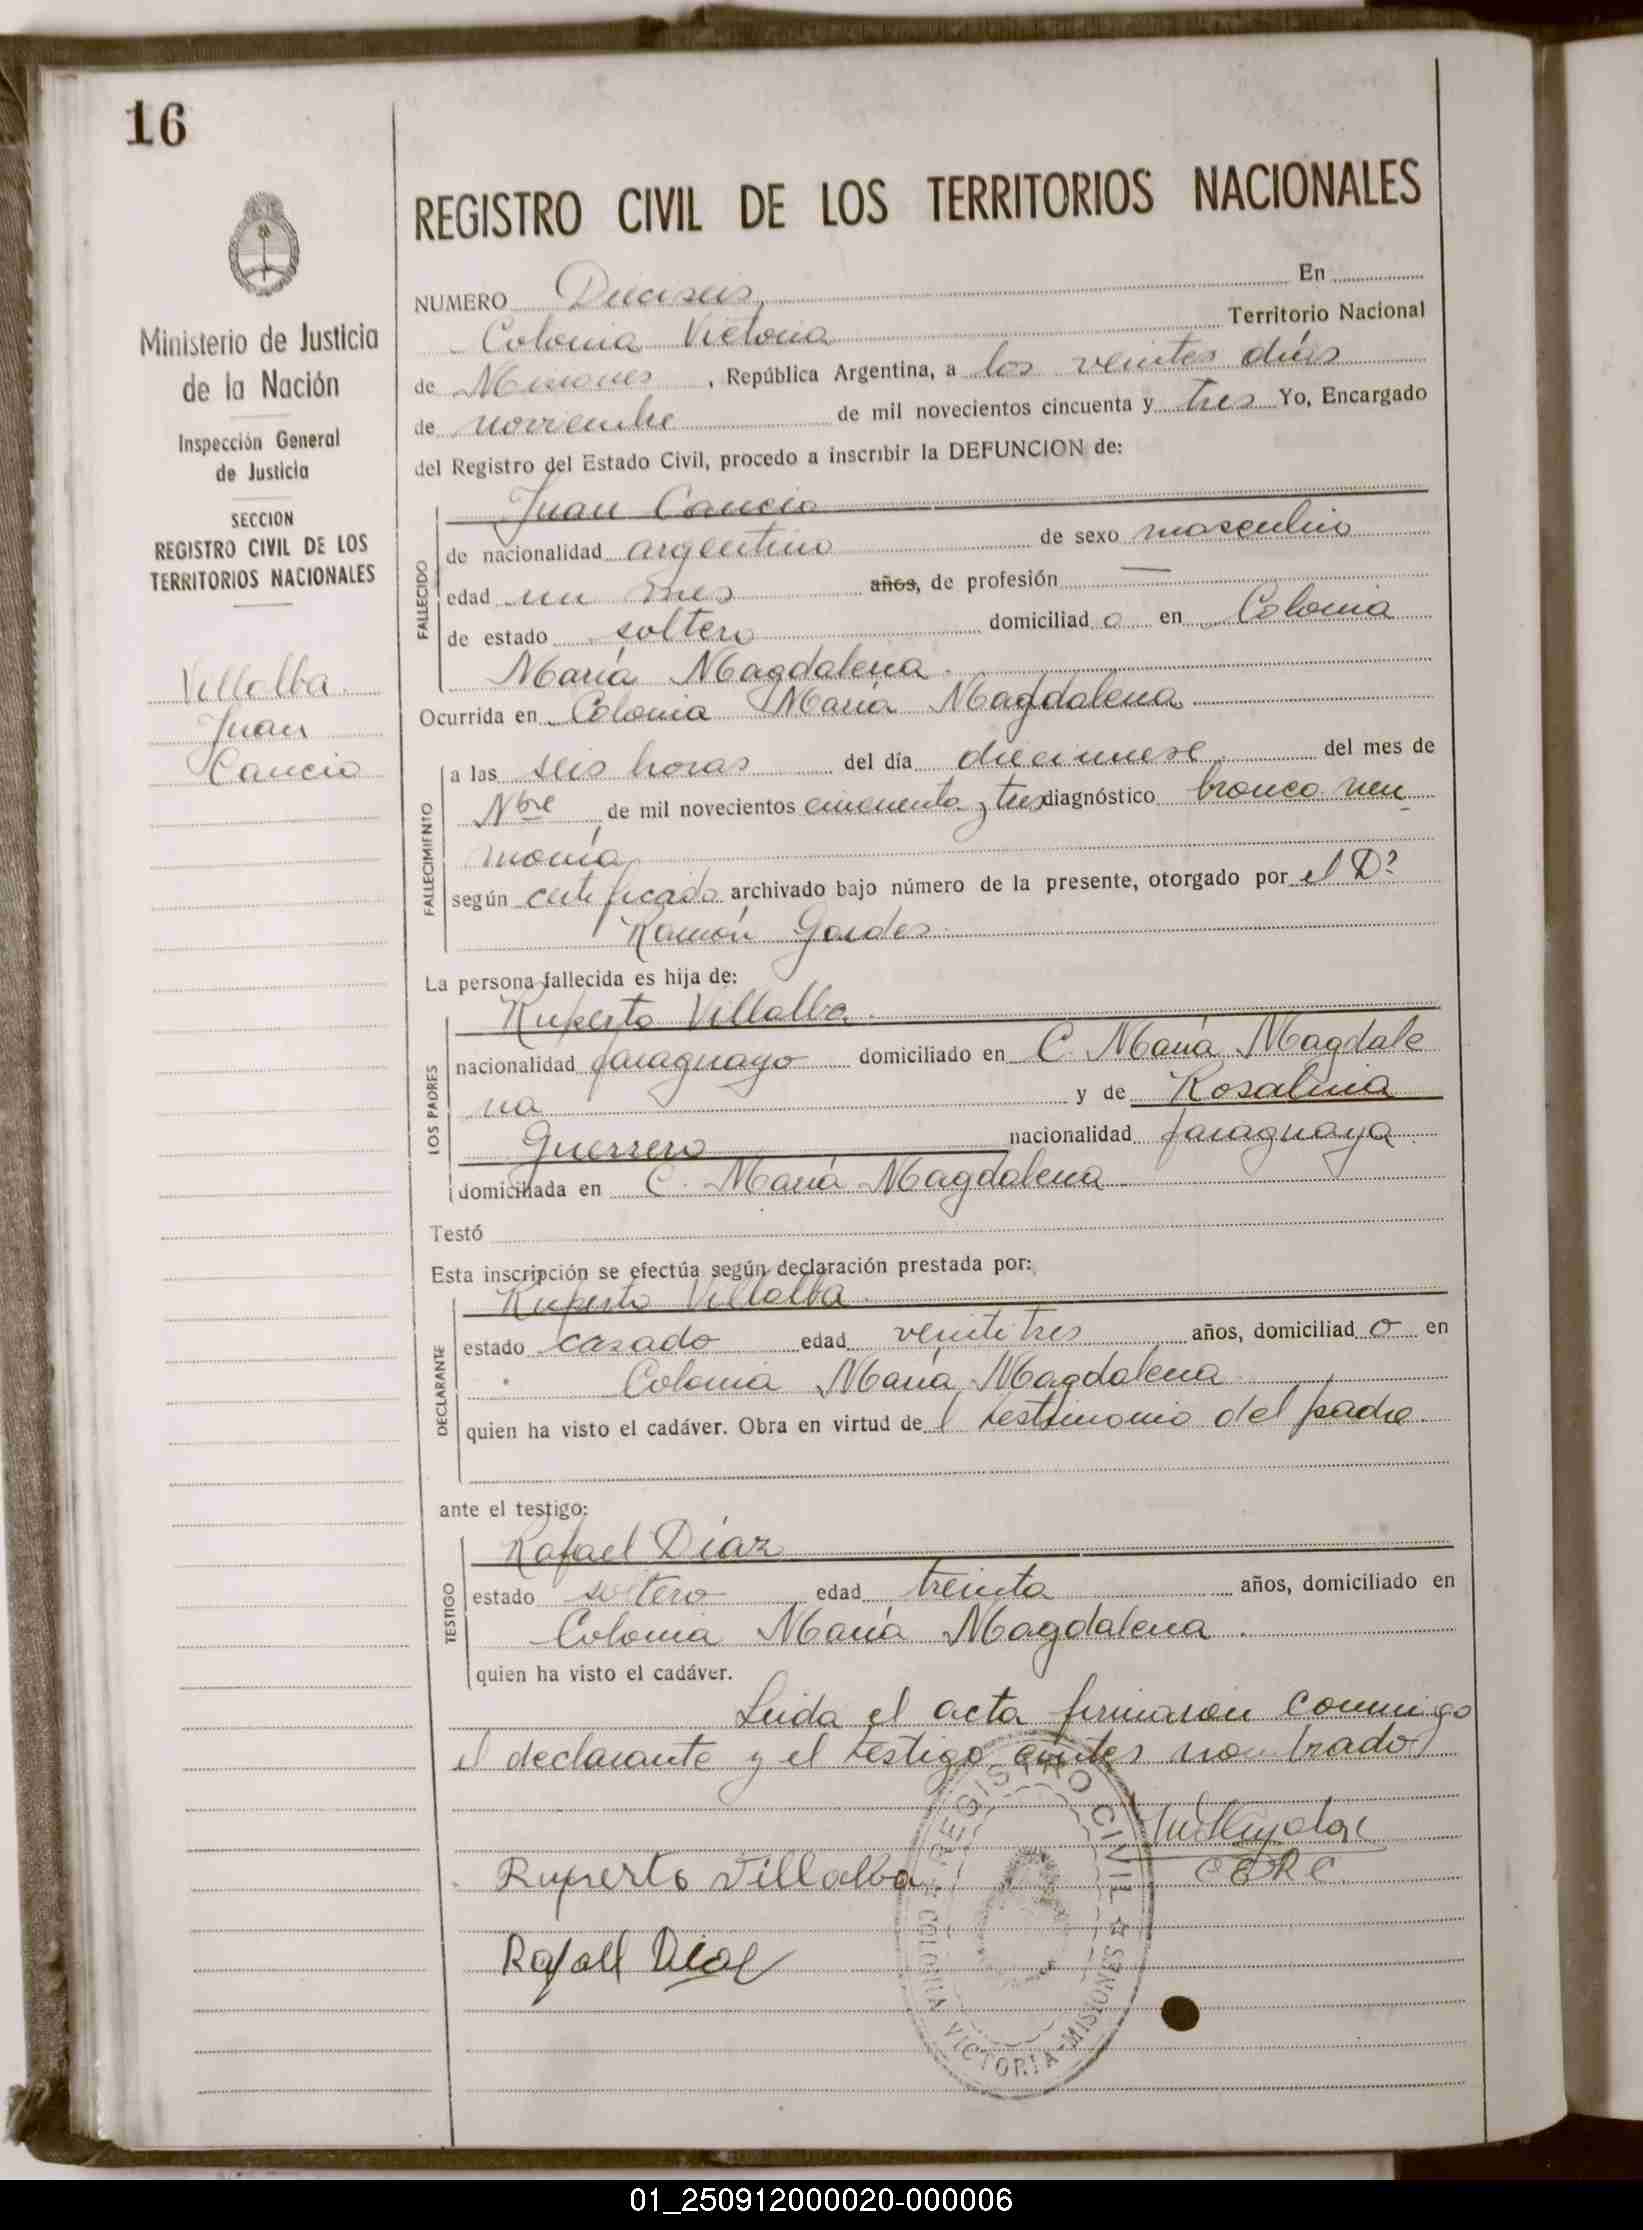 16
REGISTRO CIVIL DE LOS TERRITORIOS NACIONALES
Ministerio de Justicia
de la Nación
Inspección General
de Justicia
SECCION
REGISTRO CIVIL DE LOS
TERRITORIOS NACIONALES
Villalba
Juan
Cancio
NUMERO Dieciseis En
Colonia Victoria Territorio Nacional
de Misiones, República Argentina, a los veintes días
de noviembre de mil novecientos cincuenta y tres Yo, Encargado
del Registro del Estado Civil, procedo a inscribir la DEFUNCION de:
FALLECIDO
Juan Cancio
de nacionalidad argentino de sexo masculino
edad un mes años, de profesión —
de estado soltero domiciliad o en Colonia
María Magdalena.
Ocurrida en Colonia María Magdalena
FALLECIMIENTO
a las seis horas del día diecinueve del mes de
Nbre de mil novecientos cincuenta y tres diagnóstico bronco neu
monía
según certificado archivado bajo número de la presente, otorgado por el Dr
Ramón
La persona fallecida es hija de:
LOS PADRES
Ruperto Villalba.
nacionalidad paraguayo domiciliado en C. María Magdale
na y de Rosalina
Guerrero nacionalidad paraguaya
domiciliada en C. María Magdalena
Testó
Esta inscripción se efectúa según declaración prestada por:
DECLARANTE
Ruperto Villalba.
estado casado edad veintitres años, domiciliad o en
Colonia María Magdalena
quien ha visto el cadáver. Obra en virtud de l testimonio del padre.
ante el testigo:
TESTIGO
Rafael Díaz
estado soltero edad treinta años, domiciliado en
Colonia María Magdalena.
quien ha visto el cadáver.
Leida el acta firmaron conmigo
el declarante y el testigo antes nombrado
Ruperto Villalba
Rafael Diaz
REGISTRO CIVIL
COLONIA VICTORIA-MISIONES
01_250912000020-000006